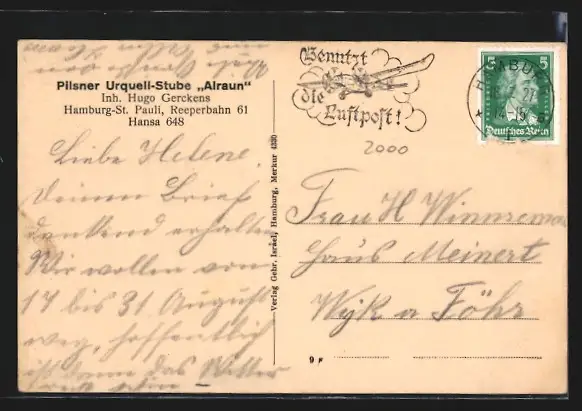 Pilsner Urquell-Stube „Alraun"
Inh. Hugo Gerckens
Hamburg-St. Pauli, Reeperbahn 61
Hansa 648
Liebe Helene.
Deinen Brief
dankend erhalten
Wir wollen vom
17 bis 31 August
weg, hoffentlich
ist dann das Wetter
Verlag Gebr. Israel, Hamburg, Merkur 4330
Benutzt
die
Luftpost!
2000
HAMBU
27
5 5
Deutsches Reich
1
Frau H Winnemann
Haus Meinert
Wyk a Föhr
9 F